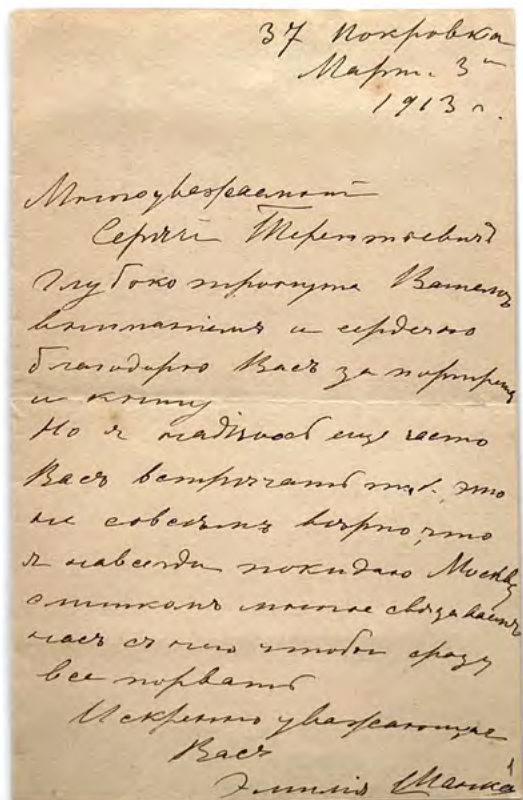 37 Покровка
Март. 3го
1913 г.
Многоуважаемый
Сергѣй Терентьевичъ
глубоко тронута Вашимъ
вниманіемъ и сердечно
благодарю Васъ за портретъ
и книгу
Но я надѣюсь еще часто
Васъ встрѣчать т.к. это
не совсѣмъ вѣрно, что
я навсегда покидаю Москву
слишкомъ многое связываетъ
насъ съ нею чтобы сразу
все порвать
Искренно уважающая
Васъ
Эмилія